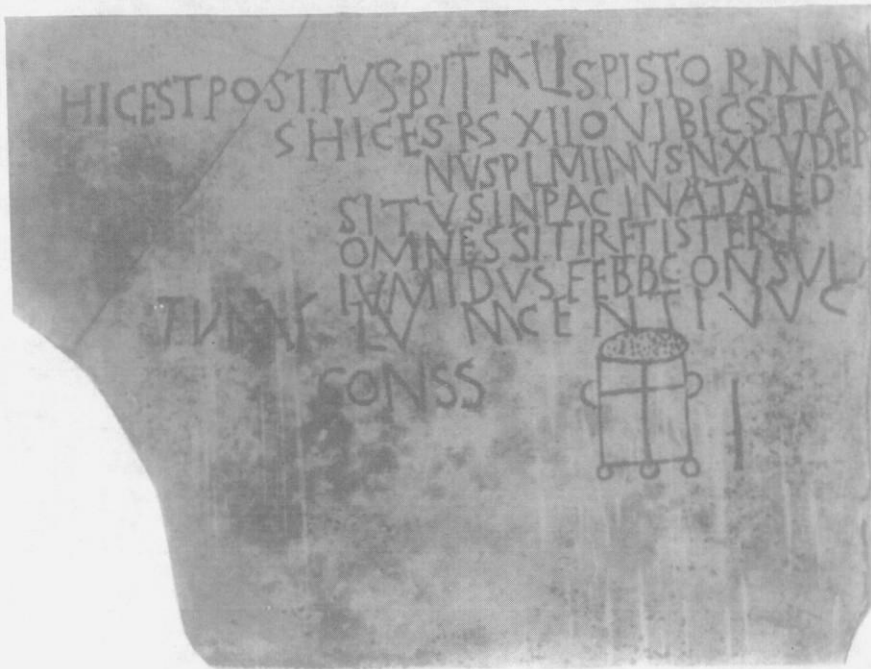 HIC EST POSITVS BITALIS PISTOR MIA
S HIC ES RS XII QVI BICSIT AN
NVS PL MINVS N XLV DEP
SITVS IN PACI NATALE D
OMNES SITIRETIS TER
IVM IDVS FEBB CONSVL
CONSS